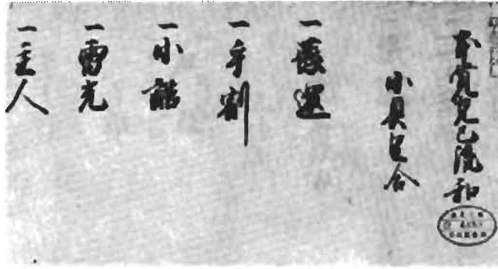 本覺克己流和
小具足合
一
一手割
一小詰
一雷光
一主人